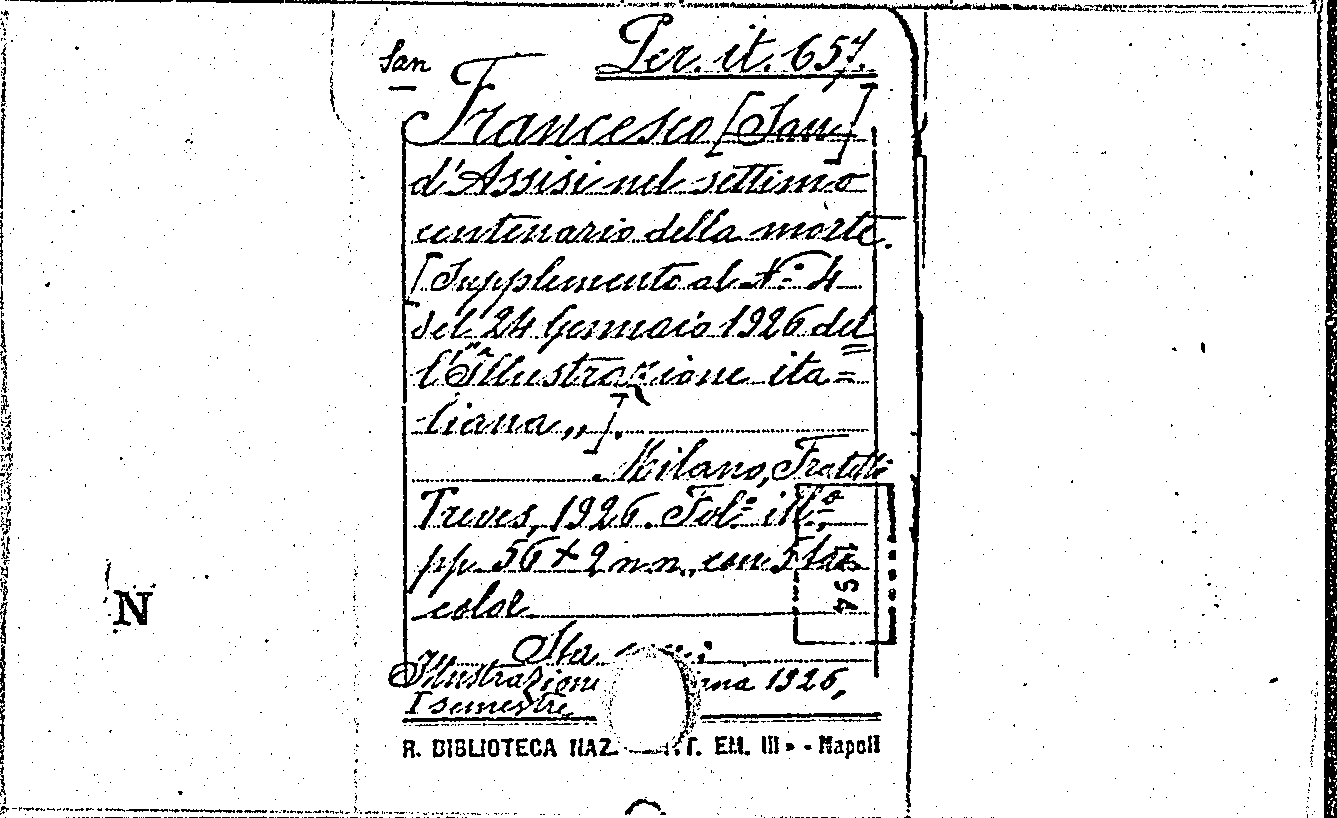 San
Per. it. 657.
Francesco [San]
d'Assisi nel settimo
centenario della morte.
[Supplemento al N.° 4
del 24 Gennaio 1926 del=
l'"Illustrazione ita=
liana„].
Milano, Fratelli
Treves, 1926. Fol.° ill.°,
pp. 56 + 2 n.n., con 5 tav.
color.
Sta
Illustrazione 1926,
I semestre.
R. BIBLIOTECA NAZ. EM. III - Napoli
1954
N